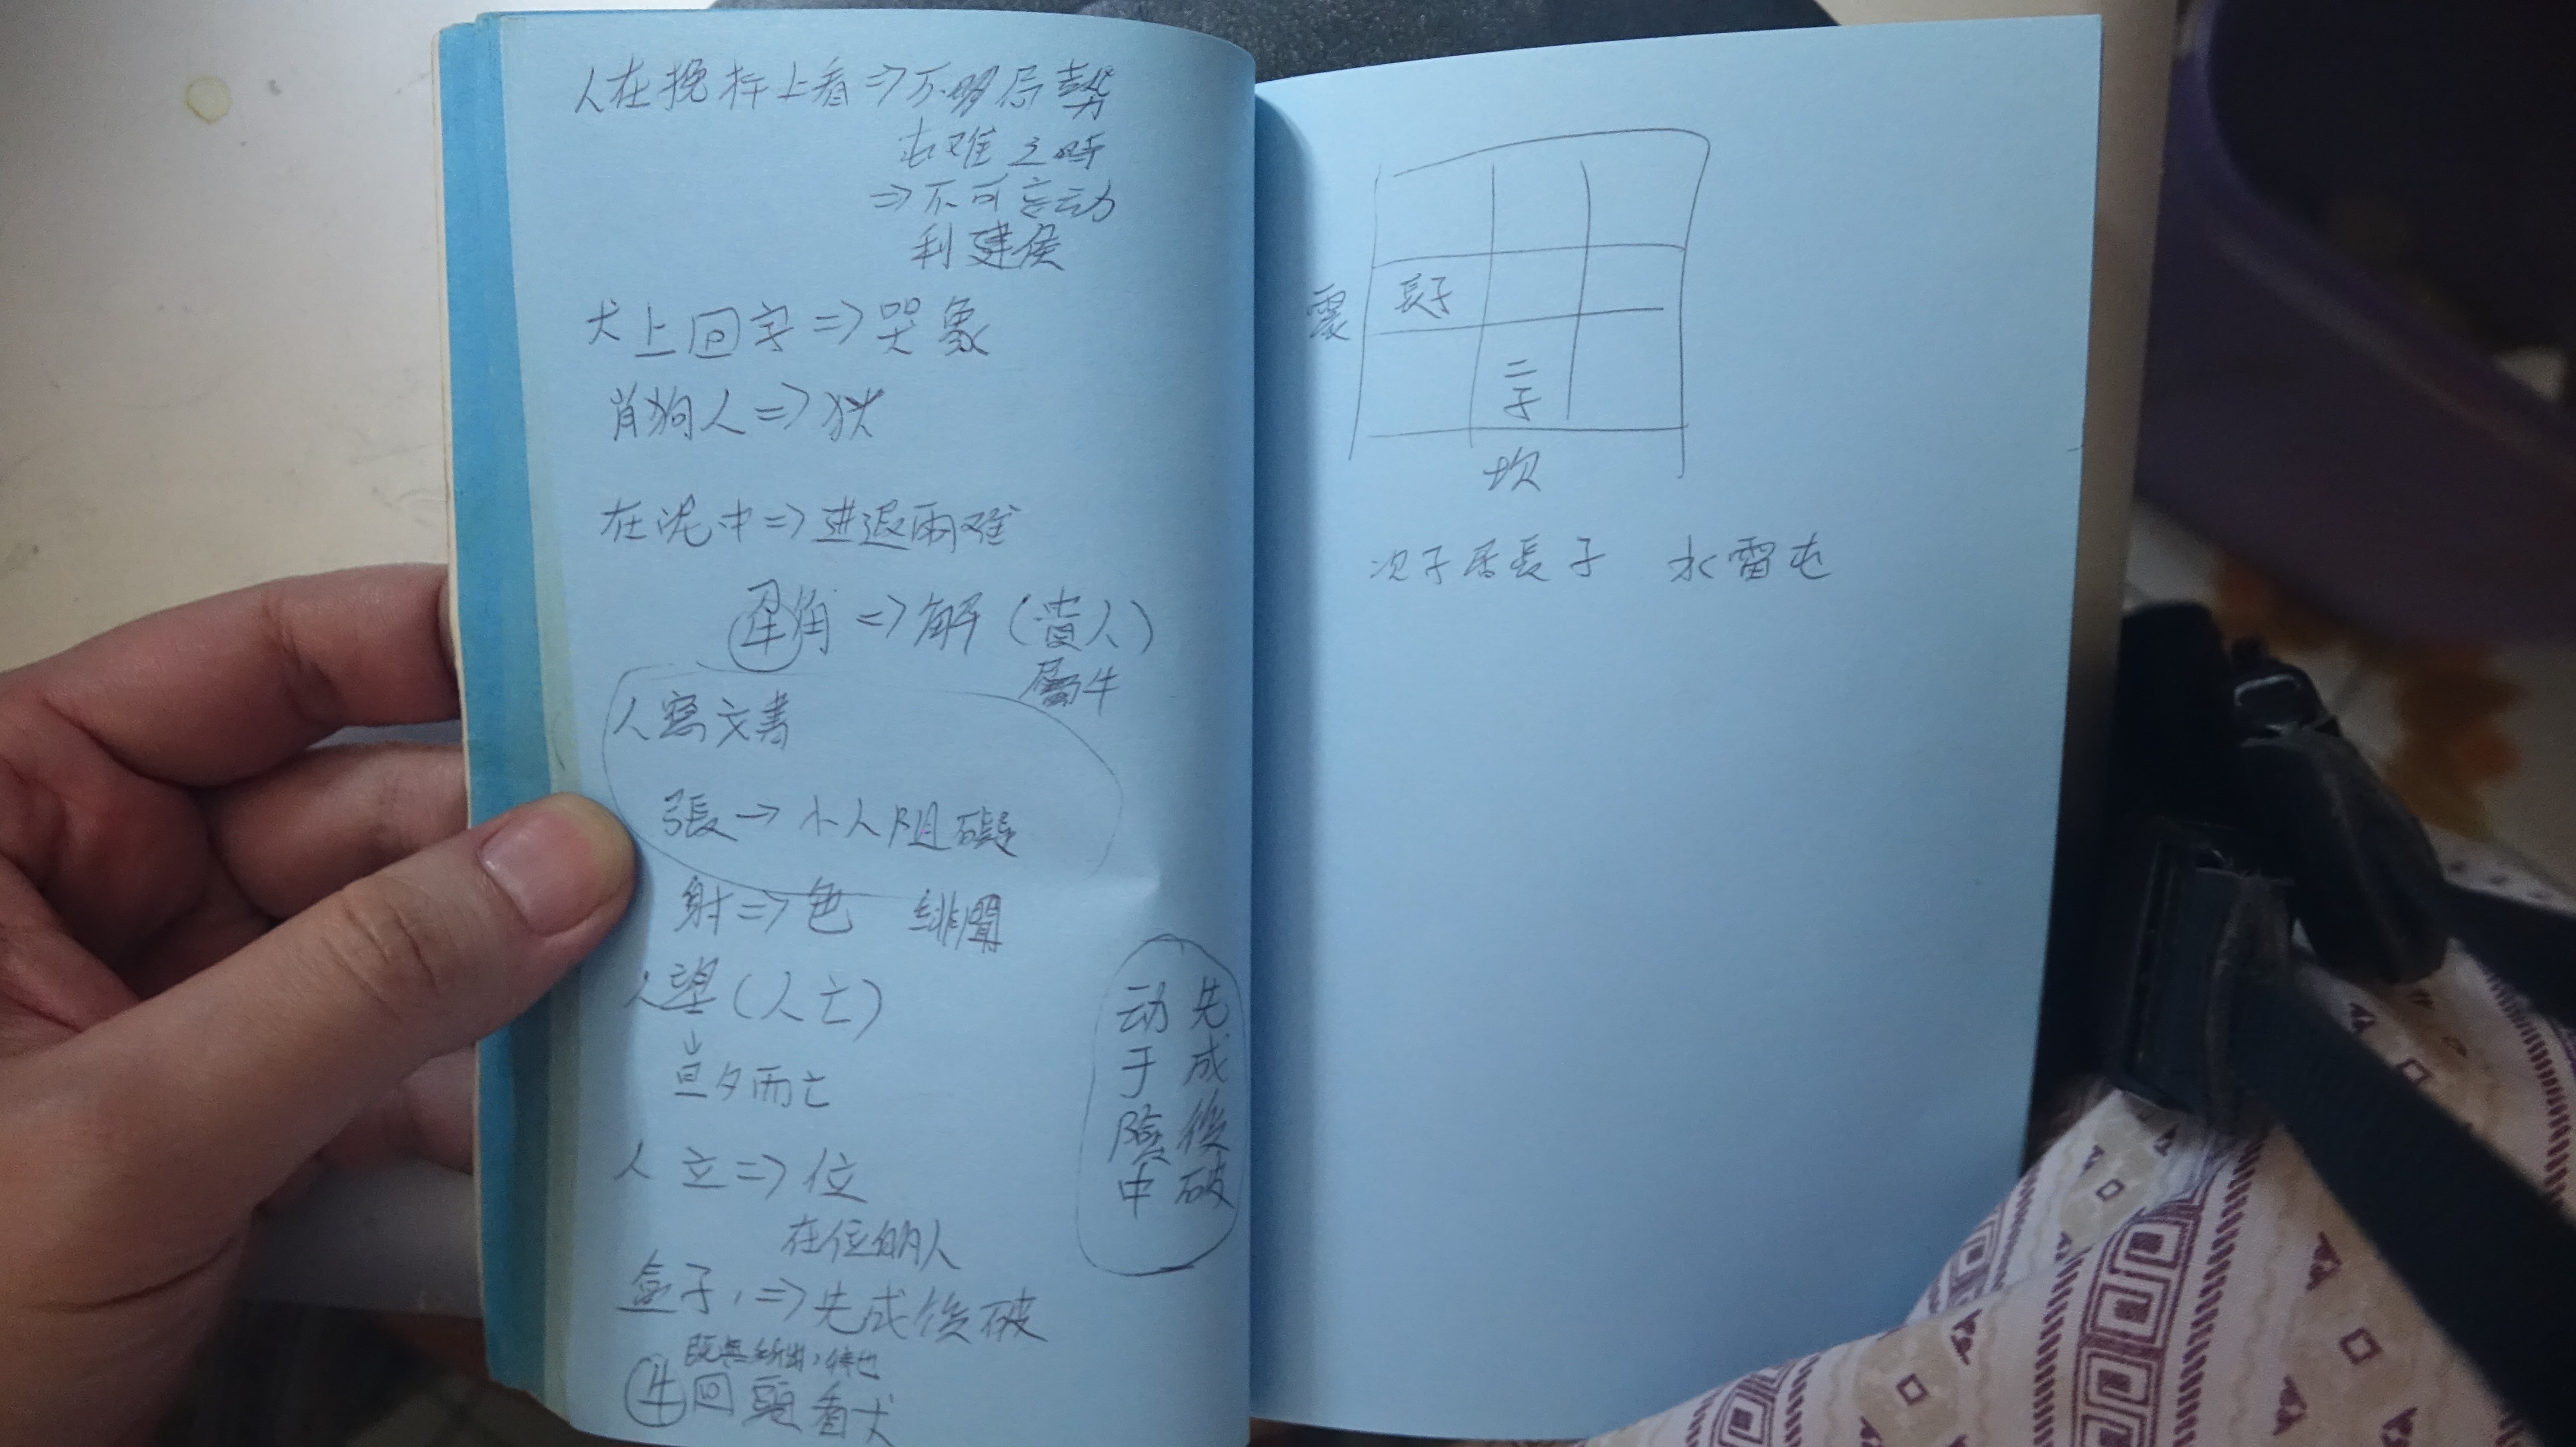 人在挽杆上看⇒不明局勢
屯难之時
⇒不可妄动
利建侯
犬上回字⇒哭象
肖狗人⇒狄
在泥中⇒进退兩难
牽角⇒解(貴人)
屬牛
人寫文書
張→小人阻礙
射⇒色 緋聞
人望(人亡)
↓
旦夕而亡
人立⇒位
在位的人
盒子,⇒先成後破
既無所
牛回頭看犬
先成後破
动于險中
震 長子
二子
坎
次子居長子 水雷屯